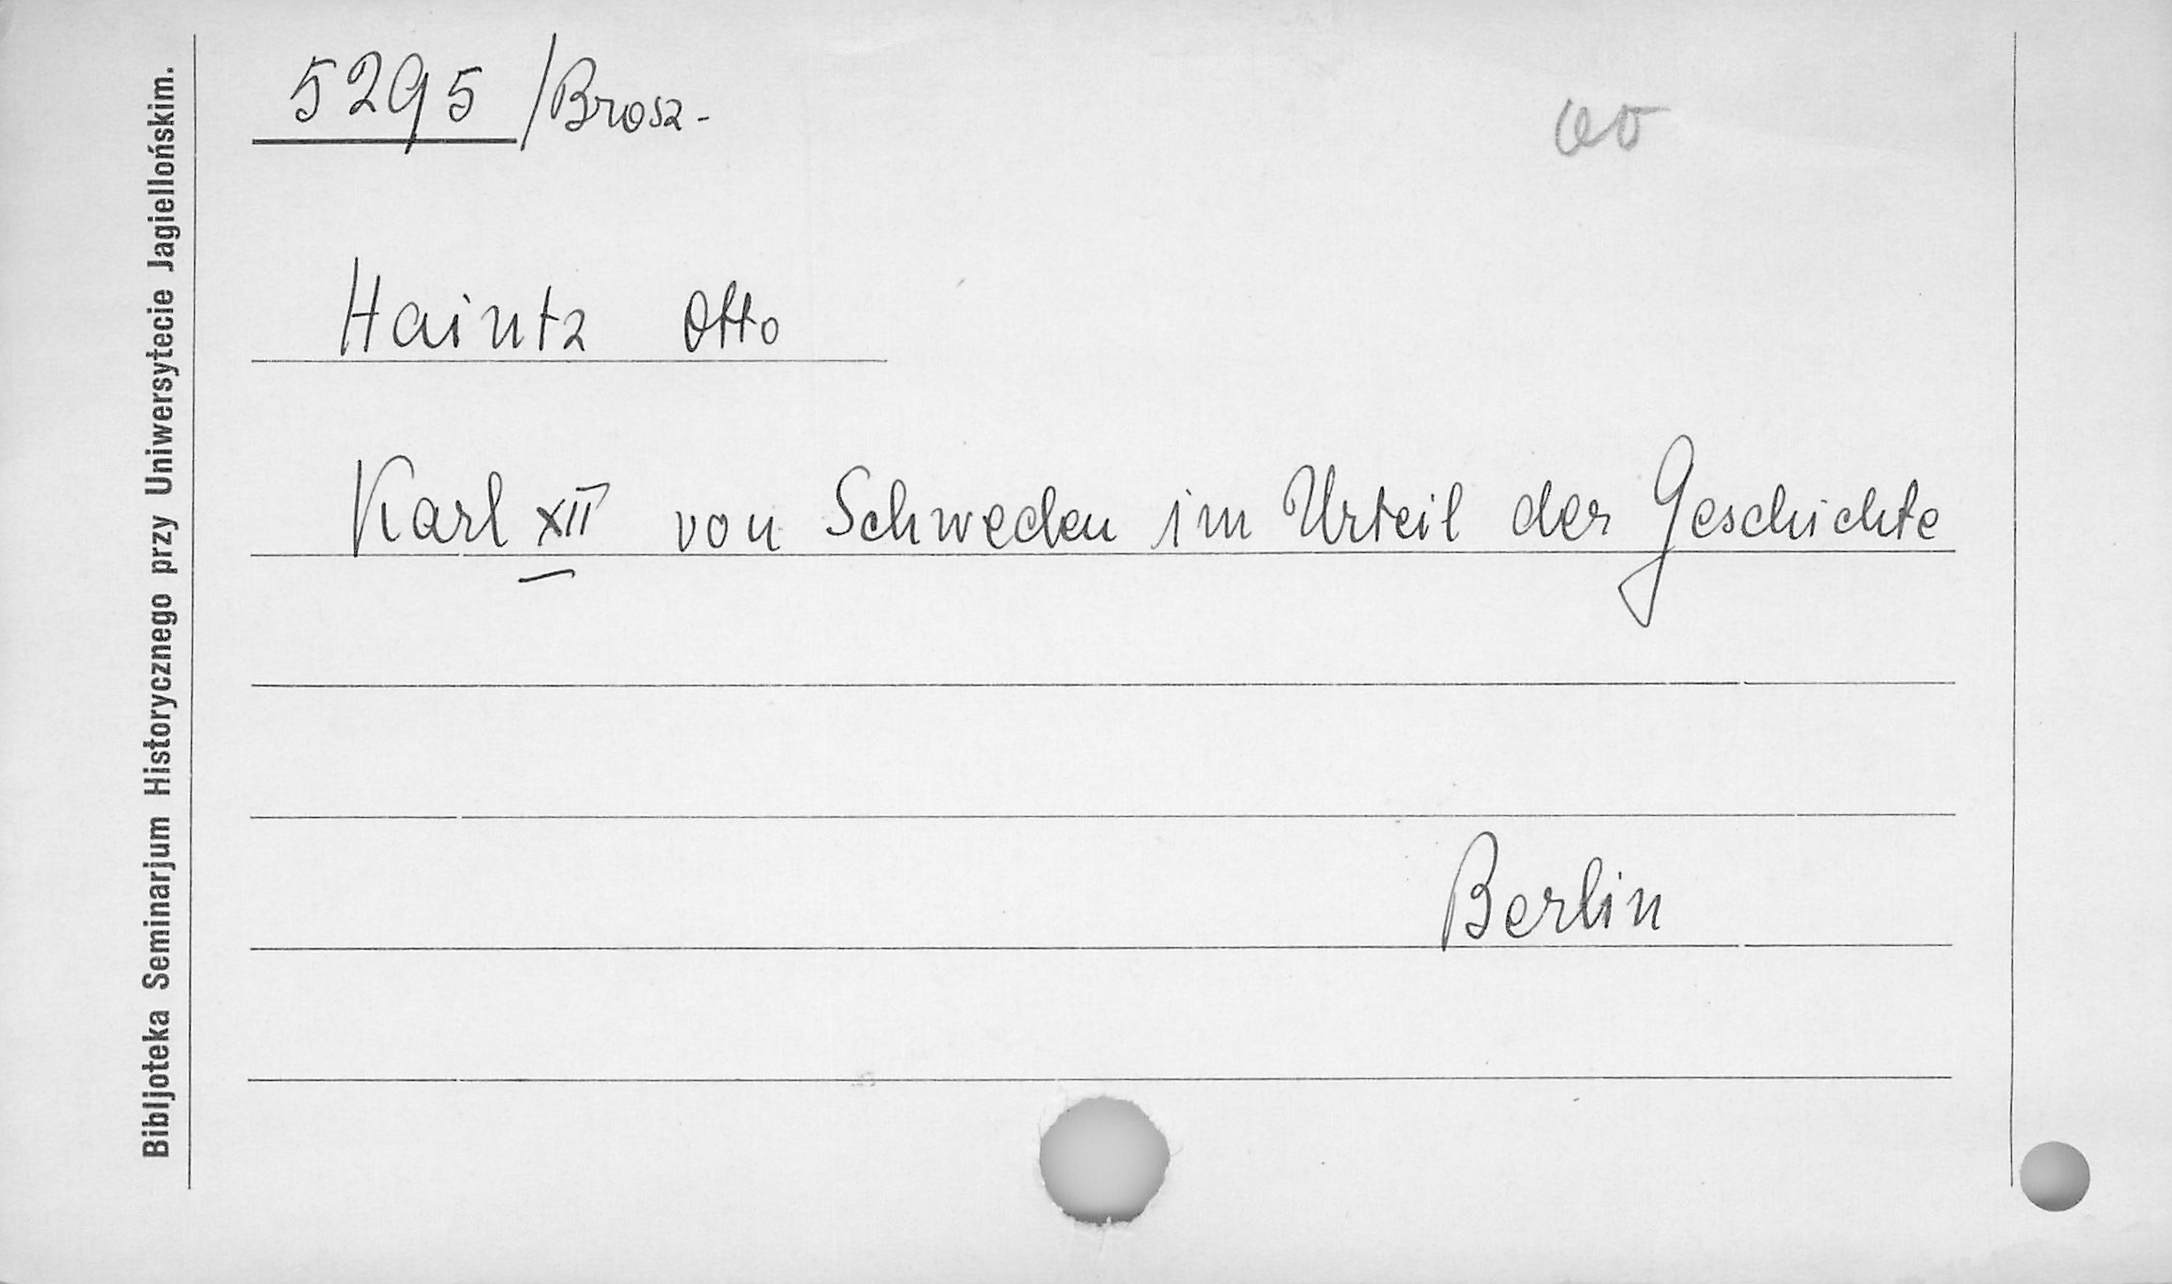 5295/Brosz-
Haintz Otto
Karl XII von Schweden im Urteil der Geschichte
Berlin
Bibljoteka Seminarjum Historycznego przy Uniwersytecie Jagiellońskim.